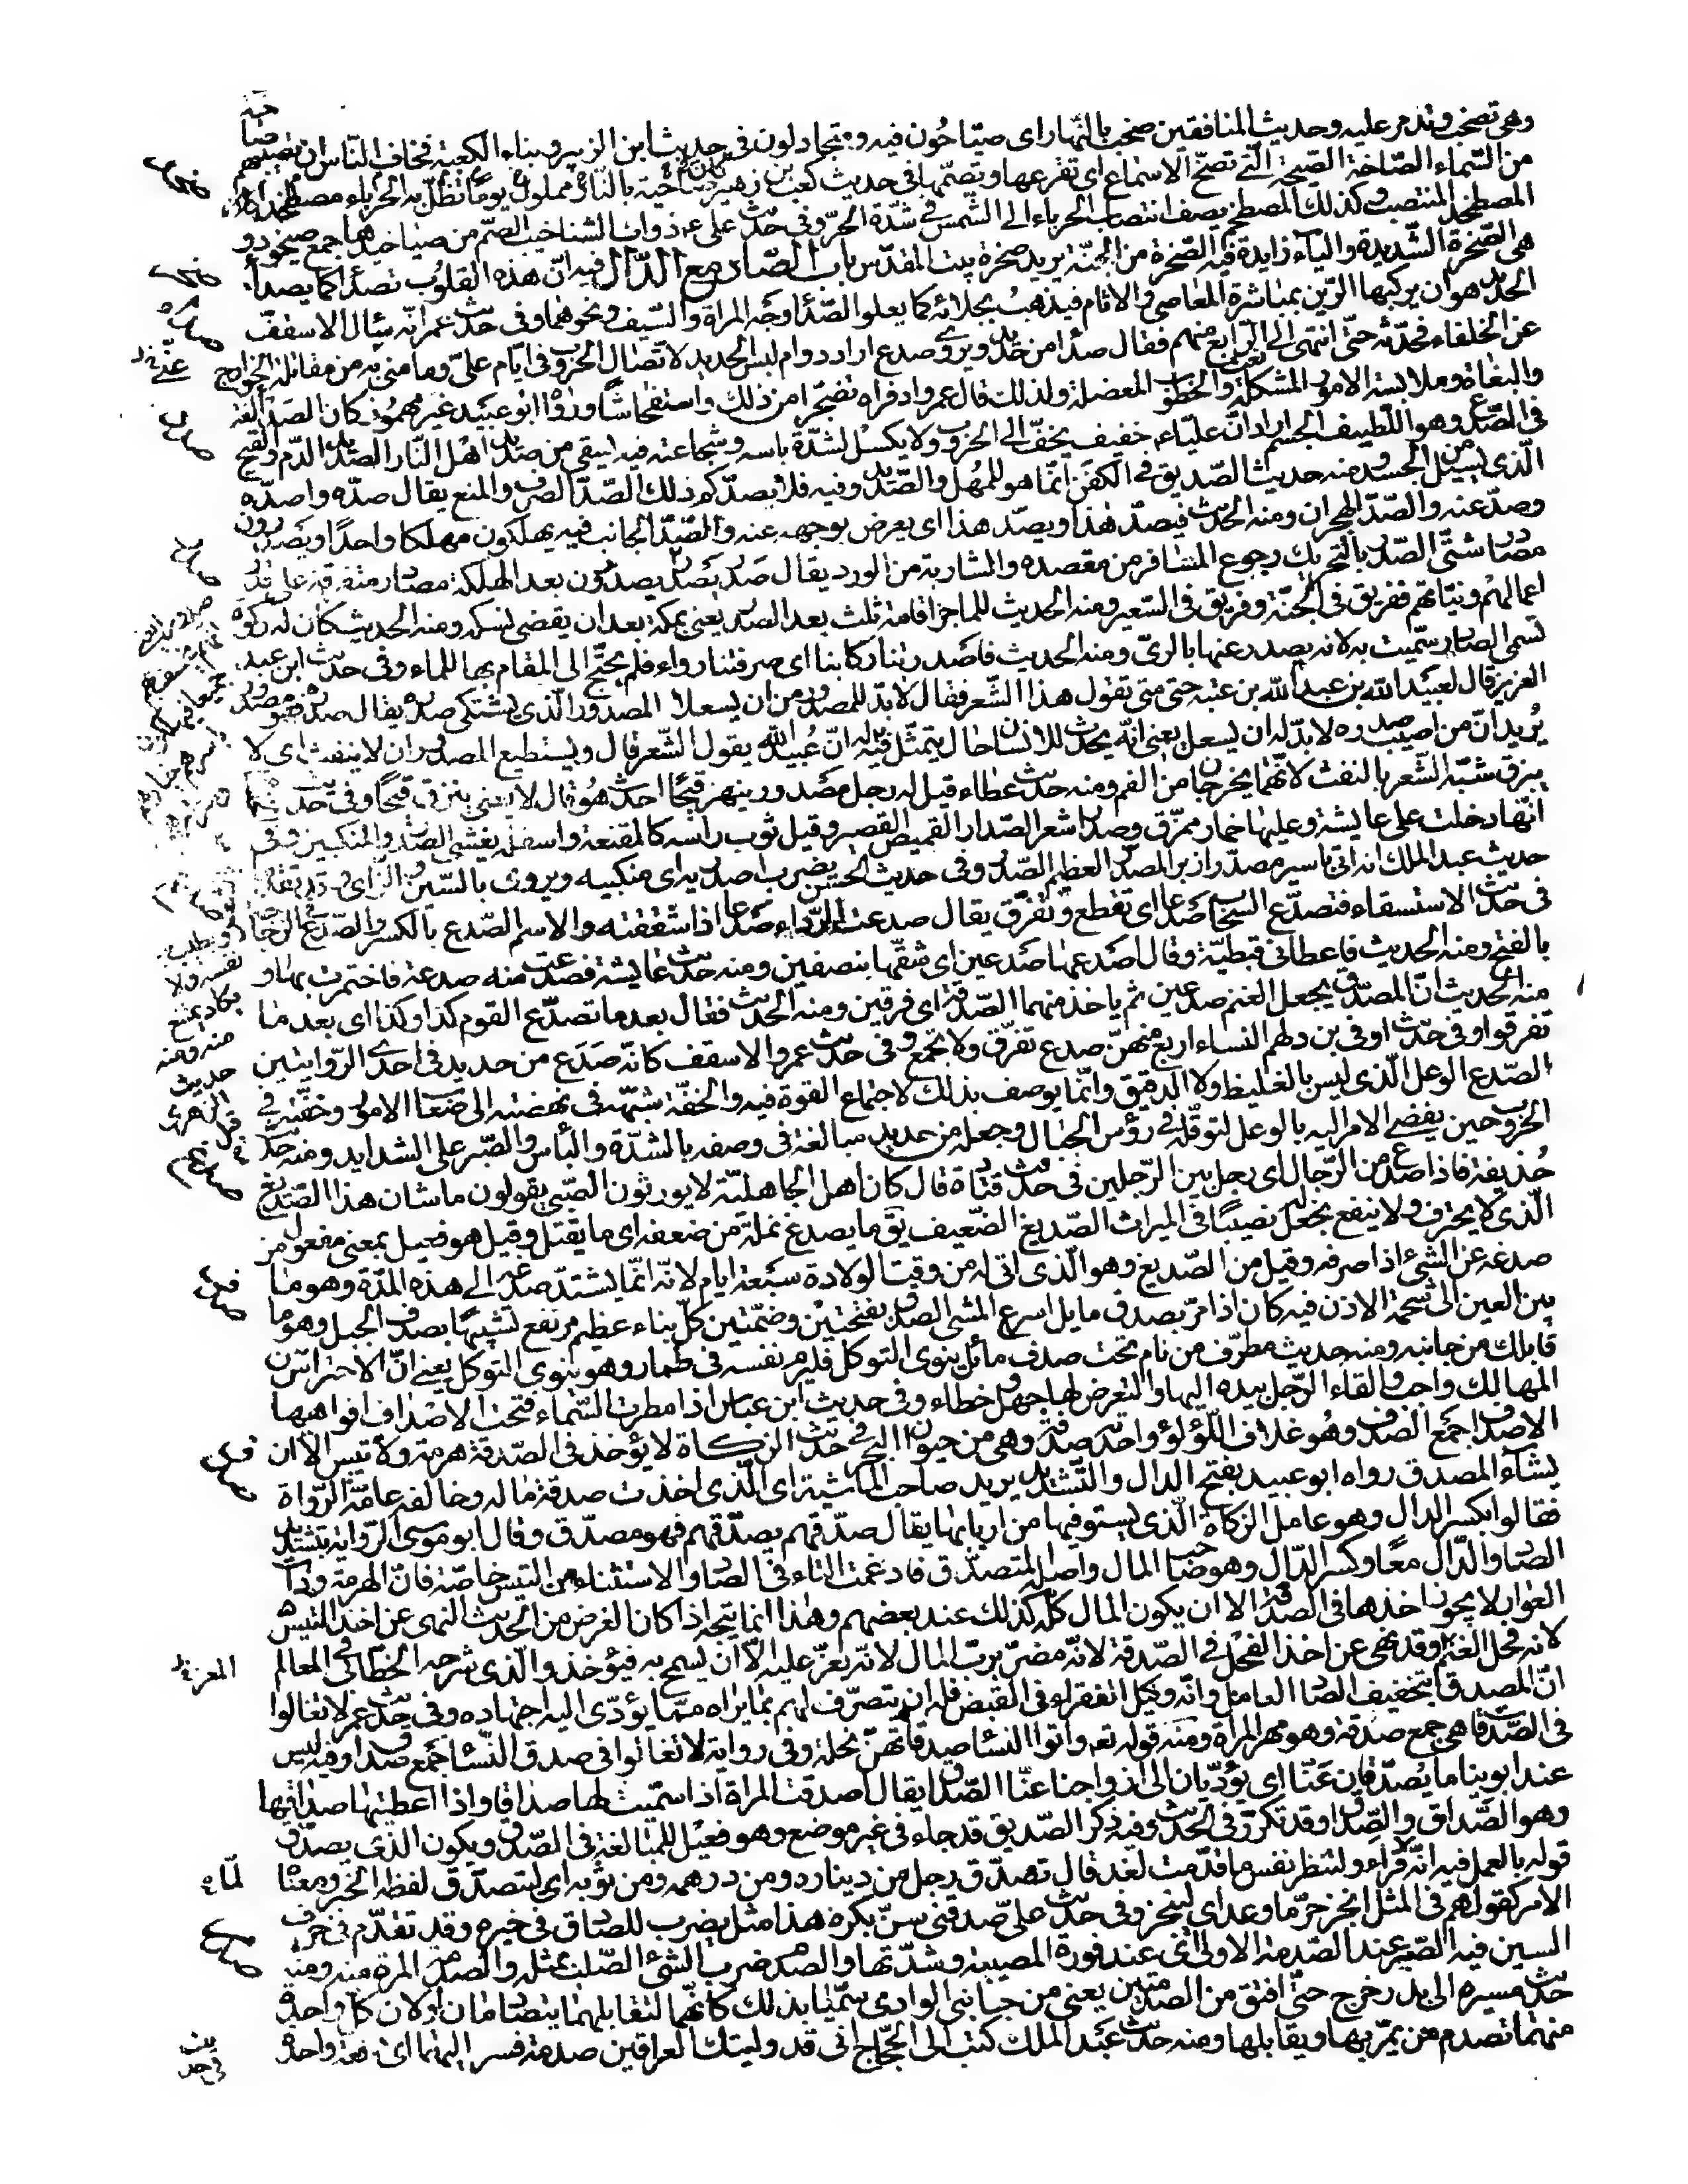 وهي تصخب وتذمر عليه وحديث المنافقين صخب بالنهار اى صيّاحُون فيه ومتجادلون في حديث ابن الزبير وبناء الكعبة فخاف الناس ان تصيبهم صاخة
من السّماء الصّاخة الصّيحة الّتي تصخّ الاسماع اى تقرعها وتصمّها في حديث كعب بن زهير كأنّ ضاحيه بالنار مملول يوما تظلّ به الحرباء مصطخدا
المصطخد المنتصب وكذلك المصطخم يصف انتصاب الحرباء الى الشمس في شدّة الحرّ وفي حديث علىّ ع ذوات الشناخيب الصّم من صياخيدها جمع صيخود و
هي الصّخرة الشديدة والياء زايدة فيه الصّخرة من الجنّة يريد صخرة بيت المقدّس باب الصّاد مع الدّال فيه انّ هذه القلوب تصدأ كما يصدأ
الحديد هو ان يركبها الرّين بمباشرة المعاصي والاثام فيذهبُ بجلائه كما يعلو الصّدأ وجه المراة والسّيف ونحوهما وفي حديث عمر انّه سئال الاسقفّ
عن الخلفاء فحدّثه حتّى انتهى الى الرّابع منهم فقال صدأ من حديد ويروى صدع اراد دوام لبس الحديد لاتّصال الحروب في ايّام علىّ وما منى به من مقاتلة الخوارج
والبغاة وملابسة الامور المشكلة والخطوب المعضلة ولذلك قال عمر وا دفراه تضجّرا من ذلك واستفحاشا ورواه ابو عبيد غير مهموز كان الصدا لغة
في الصّدع وهو اللّطيف الجسم اراد انّ عليّا ع خفيف يخفّ الى الحروب ولا يكسل لشدّة باسه وشجاعته فيه يسقى من صديد اهل النّار الصّديد الدّم والقيح
الّذي يسيل من الجسد ومنه حديث الصّديق في الكفن انّما هو للمُهل والصّديد وفيه فلا يصدّكم ذلك الصّد الصرف والمنع يقال صدّه واصدّه
وصدّ عنه والصّدّ الهجران ومنه الحديث فيصدّ هذا ويصدّ هذا اى يعرض بوجهه عنه والصّدّ الجانب فيه يهلكون مهلكا واحدًا ويصدرون
مصادر شتّى الصّدر بالتحريك رجوع المسافر من مقصده والشاربة من الورد يقال صدر يصدر يعني يصدرون بعد الهلكة مصادر متفرقة على قدر
اعمالهم ونيّاتهم ففريق في الجنّة وفريق في السّعير ومنه الحديث للمهاجر اقامة ثلث بعد الصدر يعني بمكة بعد ان يقضى نسكه ومنه الحديث كان له ركوة
تسمى الصادر سمّيت به لانه يصدر عنها بالرىّ ومنه الحديث فاصدرتنا ركابنا اى صرفتنا رواء فلم يحتج الى المقام بها للماء وفي حديث ابن عبد
العزيز قال لعبيد الله بن عبد الله بن عتبة حتى متى تقول هذا الشّعر فقال لا بدّ للمصدور من ان يسعلا المصدور الّذي يشتكى صدره يقال صدر فهو مصدور
يُريد انّ من اصيب صدره لا بدّ له ان يسعل يعني انه يحدث للانسان حال يتمثّل فيه انّ عُبيد الله يقول الشّعر قال ويستطيع المصدور ان لا ينفث اى لا
يبزق شبّه الشّعر بالنفث لانّهما يخرجان من الفم ومنه حديث عطاء قيل له رجل مصدور ينهز قيحًا احدث هو قال لا يعني يبزق قيحًا وفي حديث
انّها دخلت على عايشة وعليها خمار ممزّق وصدار شعر الصّدار القميص القصير وقيل ثوب راسه كالمقنعة واسفله يغشى الصدر والمنكبين وفي
حديث عبد الملك انه اتى باسير مصدّر ازبر المصدر العظيم الصّدر وفي حديث الحسن يضرب اصدريه اى منكبيه ويروى بالسّين والزّاى وقد تقدّم
في حديث الاستسقاء فتصدّع السحاب صدعا اى تقطع وتفرّق يقال صدعت الرّداء صدعا اذا شققته والاسم الصّدع بالكسر والصّدع في الزجاجة
بالفتح ومنه الحديث فاعطانى قبطيّة وقال اصدعها صدعين اى شقّها بنصفين ومنه حديث عايشة فصدعت منه صدعة فاختمرت بها و
منه الحديث انّ المصدّق يجعل الغنم صدعين ثم ياخذ منهما الصّدقة اى فرقين ومنه الحديث فقال بعد ما تصدّع القوم كذا وكذا اى بعد ما
تفرقوا وفي حديث اوفى بن دلهم النساء اربع منهنّ صدع تفرّق ولا تجمع وفي حديث عمر والاسقف كانّه صدع من حديد في احدى الرّوايتين
الصّدع الوعل الّذي ليس بالغليظ ولا الدقيق وانّما يوصف بذلك لاجتماع القوة فيه والخفّة شبّهه في نهضته الى صعاب الامور وخفّته في
الحروب حين يفضى الامر اليه بالوعل لتوقّله في رؤس الجبال وجعله من حديد مبالغة في وصفه بالشدّة والبأس والصّبر على الشدايد ومنه حديث
حُذيفة فاذا صدع من الرّجال اى رجل بين الرّجلين في حديث قتادة قال كان اهل الجاهليّة لا يورثون الصّبي يقولون ما شان هذا الصّديغ
الّذي لا يحترف ولا ينفع نجعل له نصيبًا في الميراث الصّديغ الضّعيف يق ما يصدغ نملة من ضعفه اى ما يقتل وقيل هو فعيل بمعنى مفعول من
صدغه عن الشئ اذا صرفه وقيل من الصّديغ وهو الّذي اتى له من وقت الولادة سبعة ايام لانّه انّما يشتدّ صدغه الى هذه المدّة وهو ما
بين العين الى شحمة الاذن فيه كان اذا مرّ بصدف مايل اسرع المشى الصدف بفتحتين وضمّتين كلّ بناء عظيم مرتفع تشبيها بصدف الجبل وهو ما
قابلك من جانبه ومنه حديث مطرّف من نام تحت صدف مائل ينوى التوكل فليرم نفسه في طمار وهو ينوى التوكل يعني انّ الاحتراس من
المهالك واجب والقاء الرّجل بيده اليها والتعرض لها جهل وخطاء وفي حديث ابن عباس اذا مطرت السّماء فتحت الاصداف افواهها
الاصداف جمع الصدف وهُو غلاف اللّؤلؤ واحدته صدفة وهي من حيوان البحر في حديث الزكاة لا يؤخذ في الصّدقة هرمة ولا تيس الّا ان
يشآء المصدق رواه ابو عبيد بفتح الدال والتّشديد يريد صاحب الماشية اى الّذي اخذت صدقة ماله وخالفه عامّة الرّواة
فقالوا بكسر الدال وهو عامل الزكاة الّذي يستوفيها من اربابها يقال صدّقهم يصدّقهم فهو مصدّق وقال ابو موسى الرّواية بتشديد
الصاد والدّال معًا وكسر الدّال وهو صاحب المال واصله المتصدّق فادغمت التاء في الصاد والاستثناء من التيس خاصّة فانّ الهرمة وذات
العوار لا يجوز اخذها في الصدقة الا ان يكون المال كلّه كذلك عند بعضهم وهذا انما يتجه اذا كان الغرض من الحديث النهى عن اخذ التيس
لانه فحل الغنم وقد نهى عن اخذ الفحل في الصّدقة لانّه مضرّ بربّ المال لانّه يعزّ عليه الّا ان يسمح به فيؤخذ والّذي شرحه الخطّابي في المعالم
انّ المصدق بتخفيف الصاد العامل وانّه وكيل الفقراء في القبض فله ان يتصرّف لهم بما يراه ممّا يؤدّى اليه اجتهاده وفي حديث عمر لا تغالوا
في الصّدقات هي جمع صدقة وهو مهر المراة ومنه قوله تعه وآتوا النسا صدقاتهنّ نحلة وفي رواية لا تغالوا في صدق النّسا جمع صداق وفيه ليس
عند ابوينا ما يُصدّقان عَنّا اى يؤدّيان الى ازواجنا عنّا الصّداق يقال اصدقت المراة اذا سمّيت لها صداقا واذا اعطيتها صداقها
وهو الصّداق والصّداق وقد تكرّر في الحديث وفيه ذكر الصّديق قد جاء في غير موضع وهو فعيل للمبالغة في الصّدق ويكون الّذي يصدّق
قوله بالعمل فيه انّه لمّا قراء ولتنظر نفس ما قدّمت لغد قال تصدّق رجل من ديناره ومن درهمه ومن ثوبه اى ليتصدّق لفظه الخبر ومعناه
الامر كقولهم في المثل انجز حرّ ما وعد اى لينجز وفي حديث علىّ صدقنى سنّ بكره هذا مثل يضرب للصادق في خبره وقد تقدّم في حرف
السين فيه الصّبر عند الصّدمة الاولى اى عند فورة المصيبة وشدّتها والصدم ضرب الشئ الصّلب بمثله والصدمة المرة منه ومنه
حديث مسيره الى بدر خرج حتّى افتق من الصدمتين يعني من جانبى الوادى سمّيتا بذلك كانّهما لتقابلهما يتصادمان او لان كلّ واحدة
منهما تصدم من يمرّ بها ويقابلها ومنه حديث عبد الملك كتب الى الحجّاج انى قد وليتك العراقين صدمة فسر اليهما اى دفعة واحدة